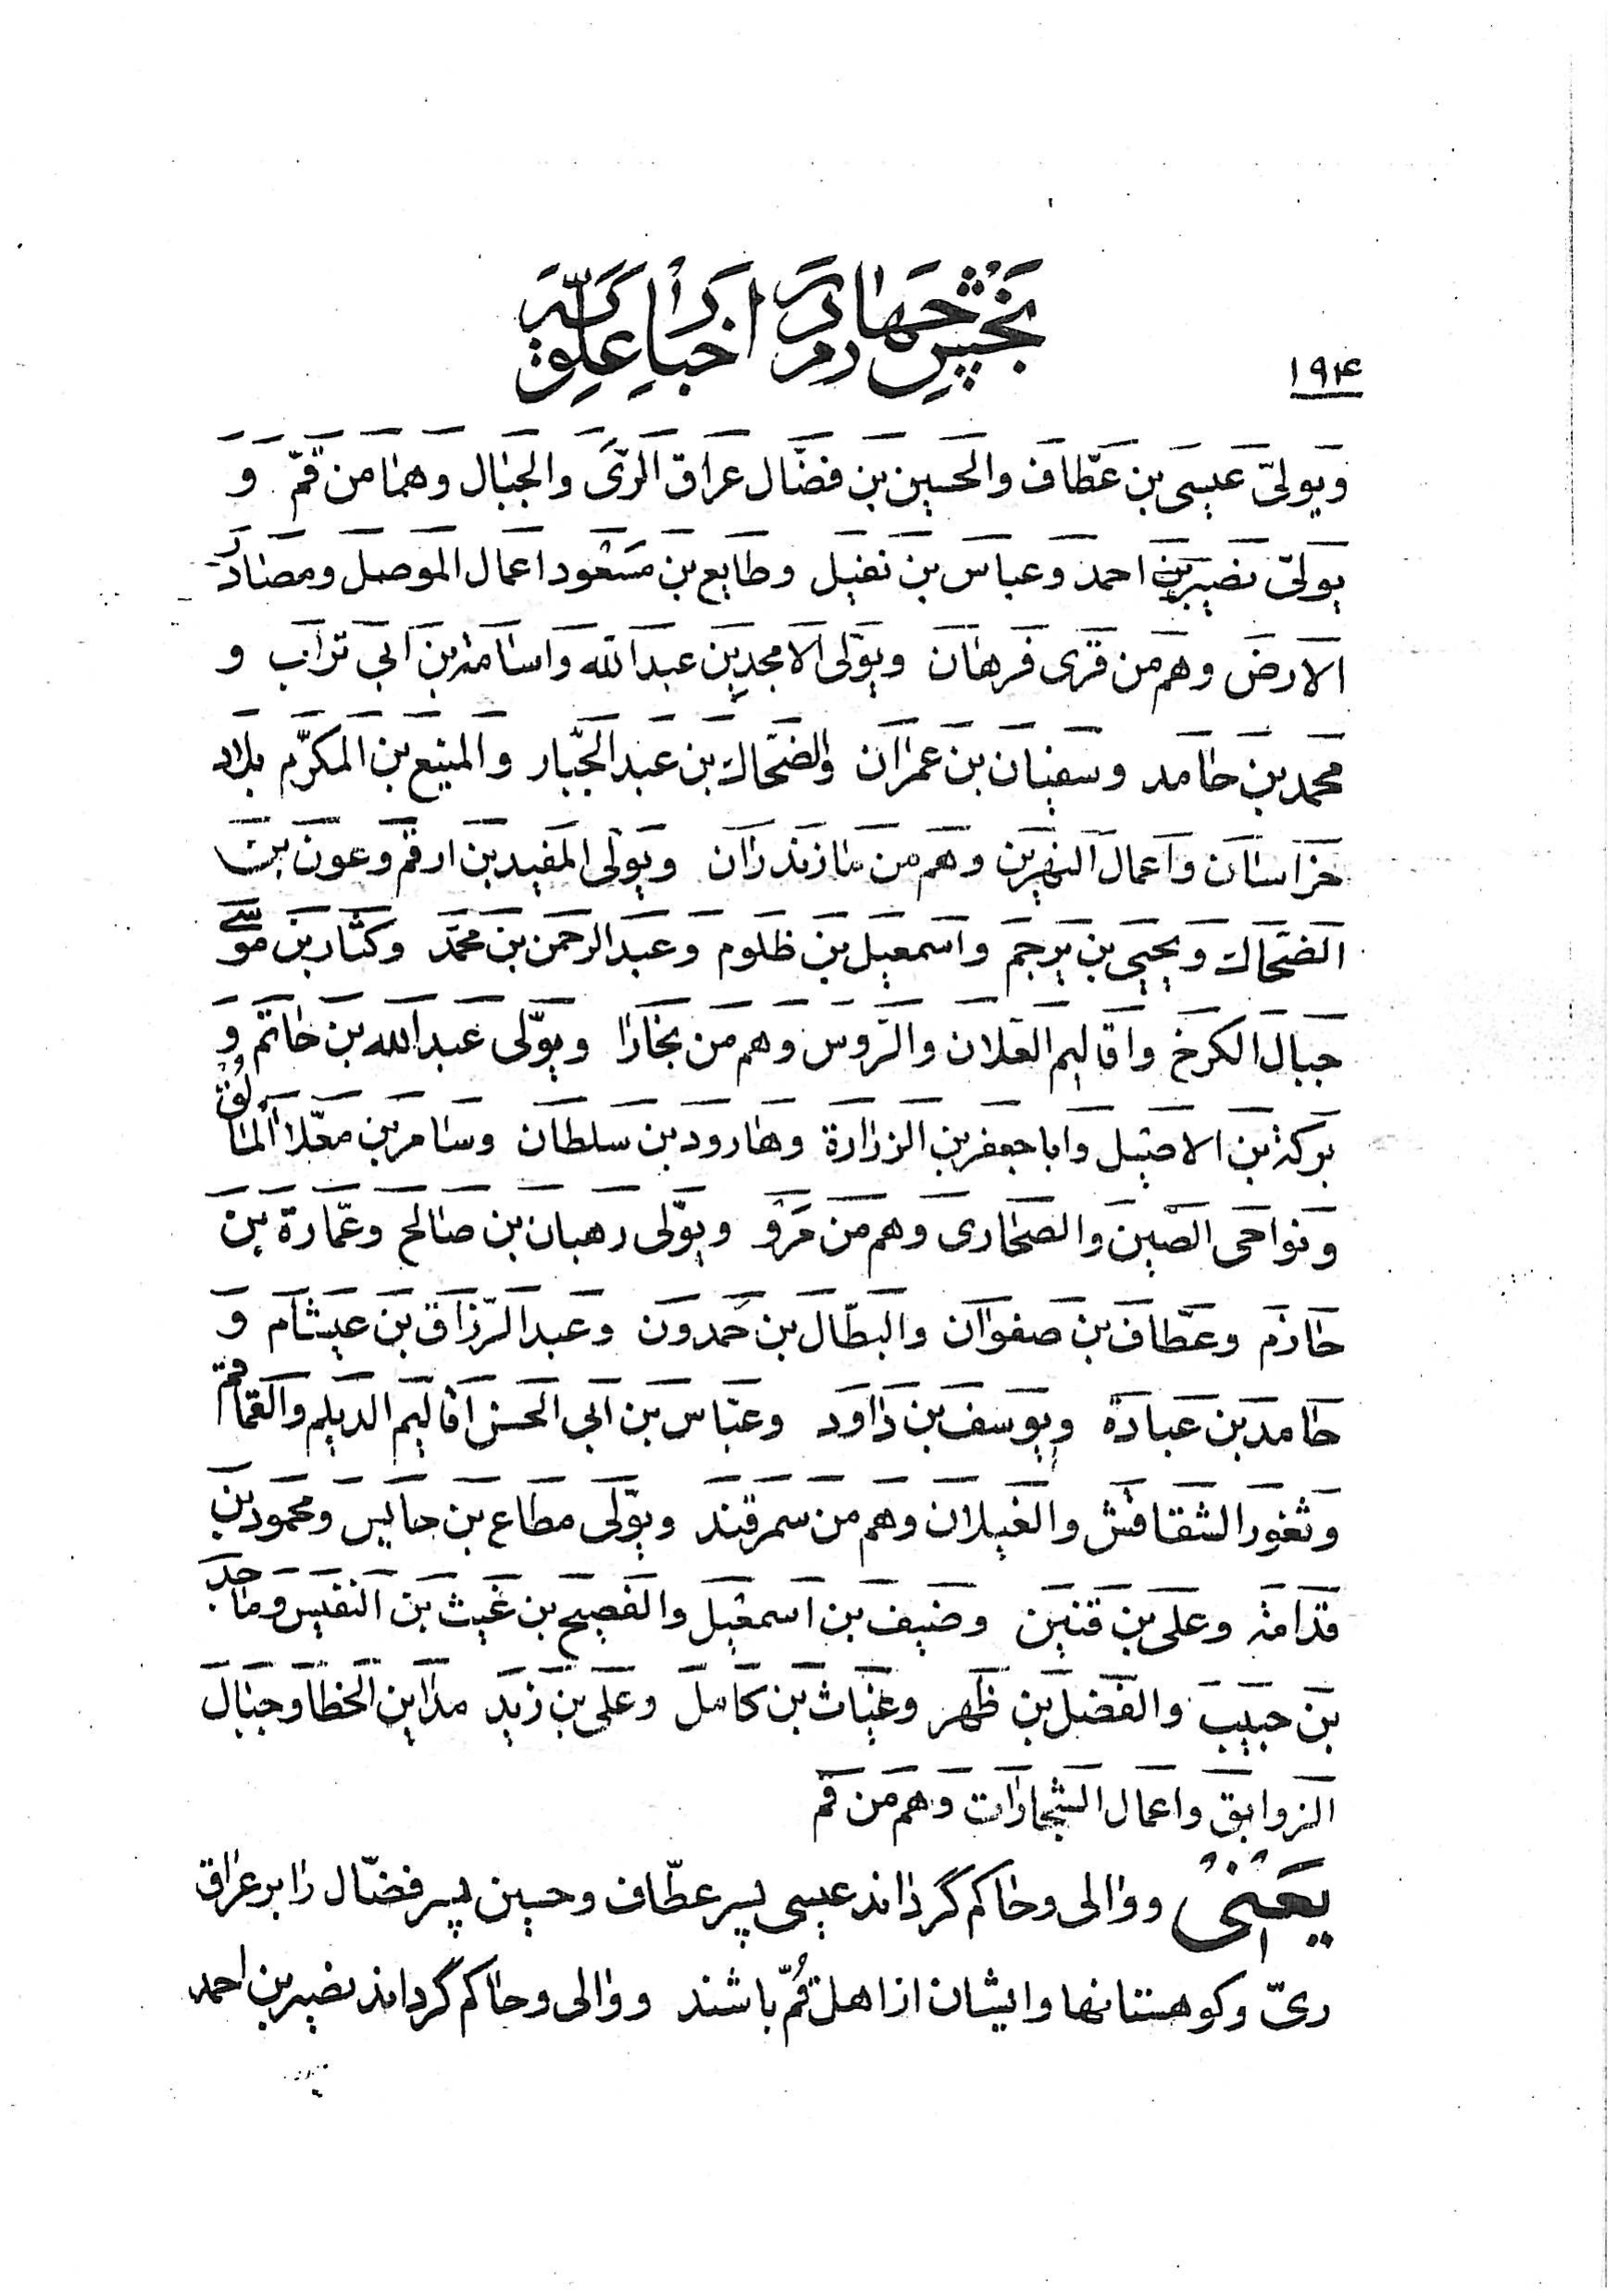 بخش چهارم در اخبار علویه
۱۹۴
ویولّی عیسی بن عطّاف والحسین بن فضّال عراق الرّی والجبال وهما من قمّ و
یولّی نصیر بن احمد وعباس بن نفیل وطایع بن مسعود اعمال الموصل ومصادر
الارض وهم من قری فرهان ویولّی الامجد بن عبدالله واسامة بن ابی تراب و
محمد بن حامد وسفیان بن عمران والضحاک بن عبد الجبّار والمنیع بن المکرّم بلاد
خراسان واعمال النهرین وهم من مازندران ویولّی المفید بن ارقم وعون بن
الضحاک ویحیی بن یرجم واسمعیل بن ظلوم وعبد الرحمن بن محمّد وکثّار بن موسی
جبال الکرخ واقالیم العلان والرّوس وهم من بخارا ویولّی عبد الله بن حاتم و
برکة بن الاصیل وابا جعفر بن الزرارة وهارود بن سلطان وسامر بن معلّا المالق
ونواحی الصّین والصحاری وهم من مرو ویولّی رهبان بن صالح وعمّارة بن
حازم وعطّاف بن صفوان والبطّال بن حمدون وعبد الرّزاق بن عیثام و
حامد بن عبادة ویوسف بن داود وعبّاس بن ابی الحسن اقالیم الدیلم والقماقم
وثغور الشقاقش والغیلان وهم من سمرقند ویولّی مطاع بن حابس ومحمود بن
قدامة وعلی بن قنین وضیف بن اسمعیل والفصیح بن غیث بن النفیس وماجد
بن حبیب والفضل بن ظهر وغیاث بن کامل وعلی بن زید مداین الخطا وجبال
الزوابق واعمال الشجارات وهم من قم
یعنی ووالی وحاکم گرداند عیسی پسر عطّاف وحسین پسر فضّال را بر عراق
ریّ وکوهستانها وایشان از اهل قُمّ باشند ووالی وحاکم گرداند نصیر بن احمد